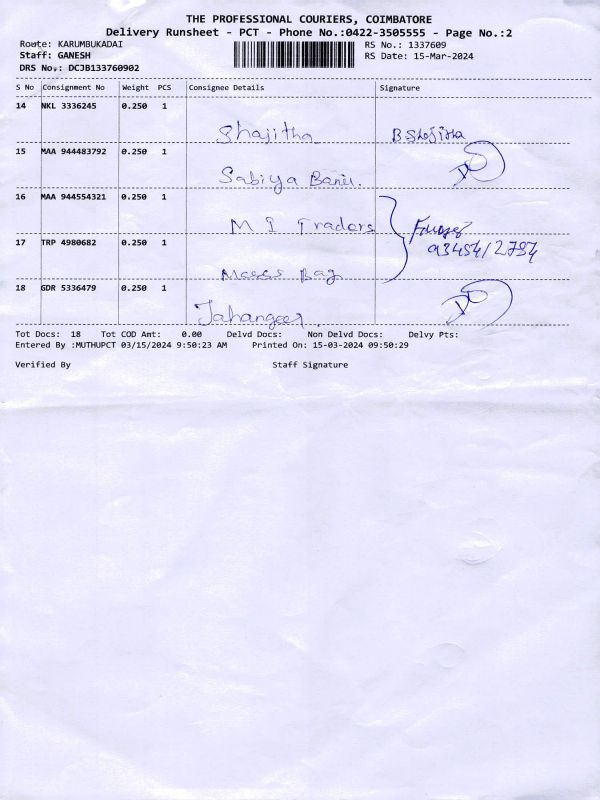 THE PROFESSIONAL COURIERS, COIMBATORE
Delivery Runsheet - PCT - Phone No.:0422-3505555 - Page No.:2
Route: KARUMBUKADAI
RS No.: 1337609
Staff: GANESH
RS Date: 15-Mar-2024
DRS No.: DCJB133760902
S No Consignment No Weight PCS Consignee Details Signature
14 NKL 3336245 0.250 1
Shajitha B Shajitha
15 MAA 944483792 0.250 1
Sabiya Banu.
16 MAA 944554321 0.250 1
M I Traders
17 TRP 4980682 0.250 1
Bag
18 GDR 5336479 0.250 1
Jahangeer.
Tot Docs: 18 Tot COD Amt: 0.00 Delvd Docs: Non Delvd Docs: Delvy Pts:
Entered By :MUTHUPCT 03/15/2024 9:50:23 AM Printed On: 15-03-2024 09:50:29
Verified By Staff Signature